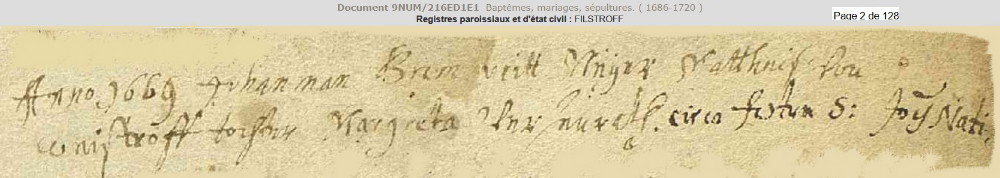 Document 9NUM/216ED1E1 Baptêmes, mariages, sépultures. ( 1686-1720 )
Registres paroissiaux et d'état civil : FILSTROFF
Page 2 de 128
Anno 1669 Johanman Brem Meyer Mattheis von
tochter Margreta circa festum S: Joÿ Nati,